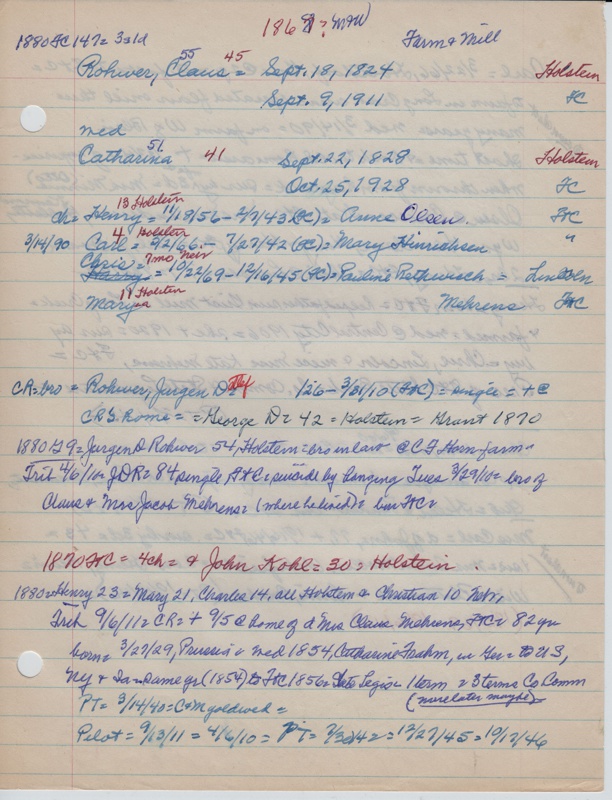 1880 FC 147 = 3 s 1d
186 ? = M&W
Farm & Mill
Rohwer, Claus = 55 45 Sept. 18, 1824 Holstein
Sept. 9, 1911 FC
med
Catharina 51 41 Sept. 22, 1828 Holstein
Oct. 25, 1928 FC
ch = Henry = 13 Holstein 11/18/56 - 2/7/43 (FC) = Anna Olsen. FC
3/14/90 Carl = 4 Holstein 3/2/66 - 7/27/42 (FC) = Mary Hinrichsen "
Chris = 7mo Neb
Harry = 10/22/69 - 12/16/45 (FC) = Pauline = Lincoln
Mary 11 Holstein Mehrens FC
CR = bro = Rohwer, Jurgen D = 1/26 - 3/31/10 (FtC) = single = + @
CRS Rome = = George D = 42 = Holstein = Grant 1870
1880 G9 = Jurgen D Rohwer 54, Holstein = bro in law @ C F Horn farm =
Trib 4/6/10 = JDR = 84 single FtC = suicide by hanging Tues 3/29/10 = bro of
Claus & Mrs Jacob Mehrens = (where he lived) = bur FtC =
1870 FtC = 4ch = & John Kohl = 30 = Holstein.
1880 = Henry 23 = Mary 21, Charles 14, all Holstein & Christian 10 Neb,
Trib 9/6/11 = CR = + 9/5 @ home of d Mrs Claus Mehrens, FtC = 82 yrs
born = 3/27/29, Prussia = med 1854, Catharine Frahm, in Ger = to US,
NY & Ia = same yr (1854) to FtC 1856 = State Legis = 1 term = 3 terms Co Comm
(more later maybe)
PT = 3/14/40 = C & M gold wed =
Pilot = 9/13/11 = 4/6/10 = PT = 7/30/42 = 12/27/45 = 10/17/46